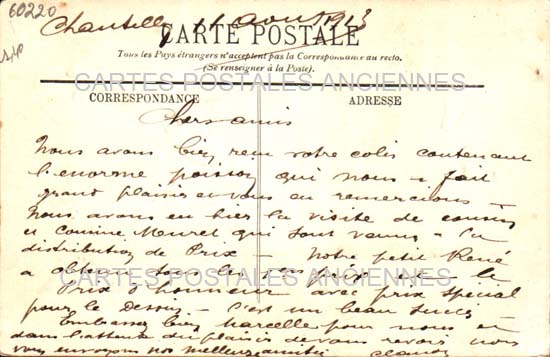 60220
Chantilly 11 août 1913
CARTE POSTALE
Tous les Pays étrangers n'acceptent pas la Correspondance au recto.
(Se renseigner à la Poste).
CARTES POSTALES ANCIENNES
CORRESPONDANCE ADRESSE
Chers amis
Nous avons bien reçu votre colis contenant
l'énorme poisson qui nous a fait
grand plaisir et vous en remercions —
Nous avons eu hier la visite de cousin
et cousine Meuret qui sont venus à la
distribution de Prix — Notre petit René
a obtenu tous les prix et le
CARTES POSTALES ANCIENNES
Prix d'honneur avec prix spécial
pour le Dessin — C'est un beau succès —
Embrassez bien Marcelle pour nous et
dans l'attente du plaisir de vous revoir nous
vous envoyons nos meilleures amitiés